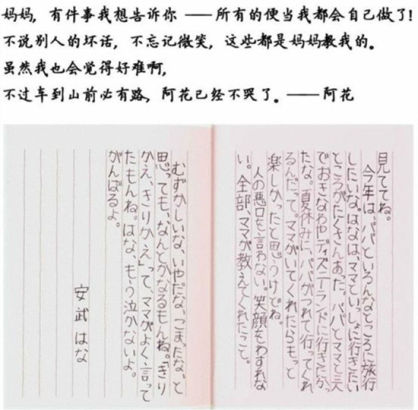 妈妈，有件事我想告诉你 ——所有的便当我都会自己做了!
不说别人的坏话，不忘记微笑，这些都是妈妈教我的。
虽然我也会觉得好难啊，
不过车到山前必有路，阿花已经不哭了。——阿花
見ててね。
今年は、パパといろんなところに旅行
したいな。はなは、ママといっしょに行きたい
ところがたくさんあった。パパとママと三人
でおきなわやディズニーランドに行きたか
たな。夏休みに、パパがつれて行ってくれ
るんだって。ママがいてくれたらもっと
楽しかったと思うけどね。
人の悪口も言わない。笑顔もわすれな
い。全部、ママが教えてくれたこと。
むずかしいな、いやだな、こまったな、と
思っても、なんとかなるもんね。きり
かえ、きりかえって、ママがよく言って
たもんね。はな、もう泣かないよ。
がんばるよ。
安武はな